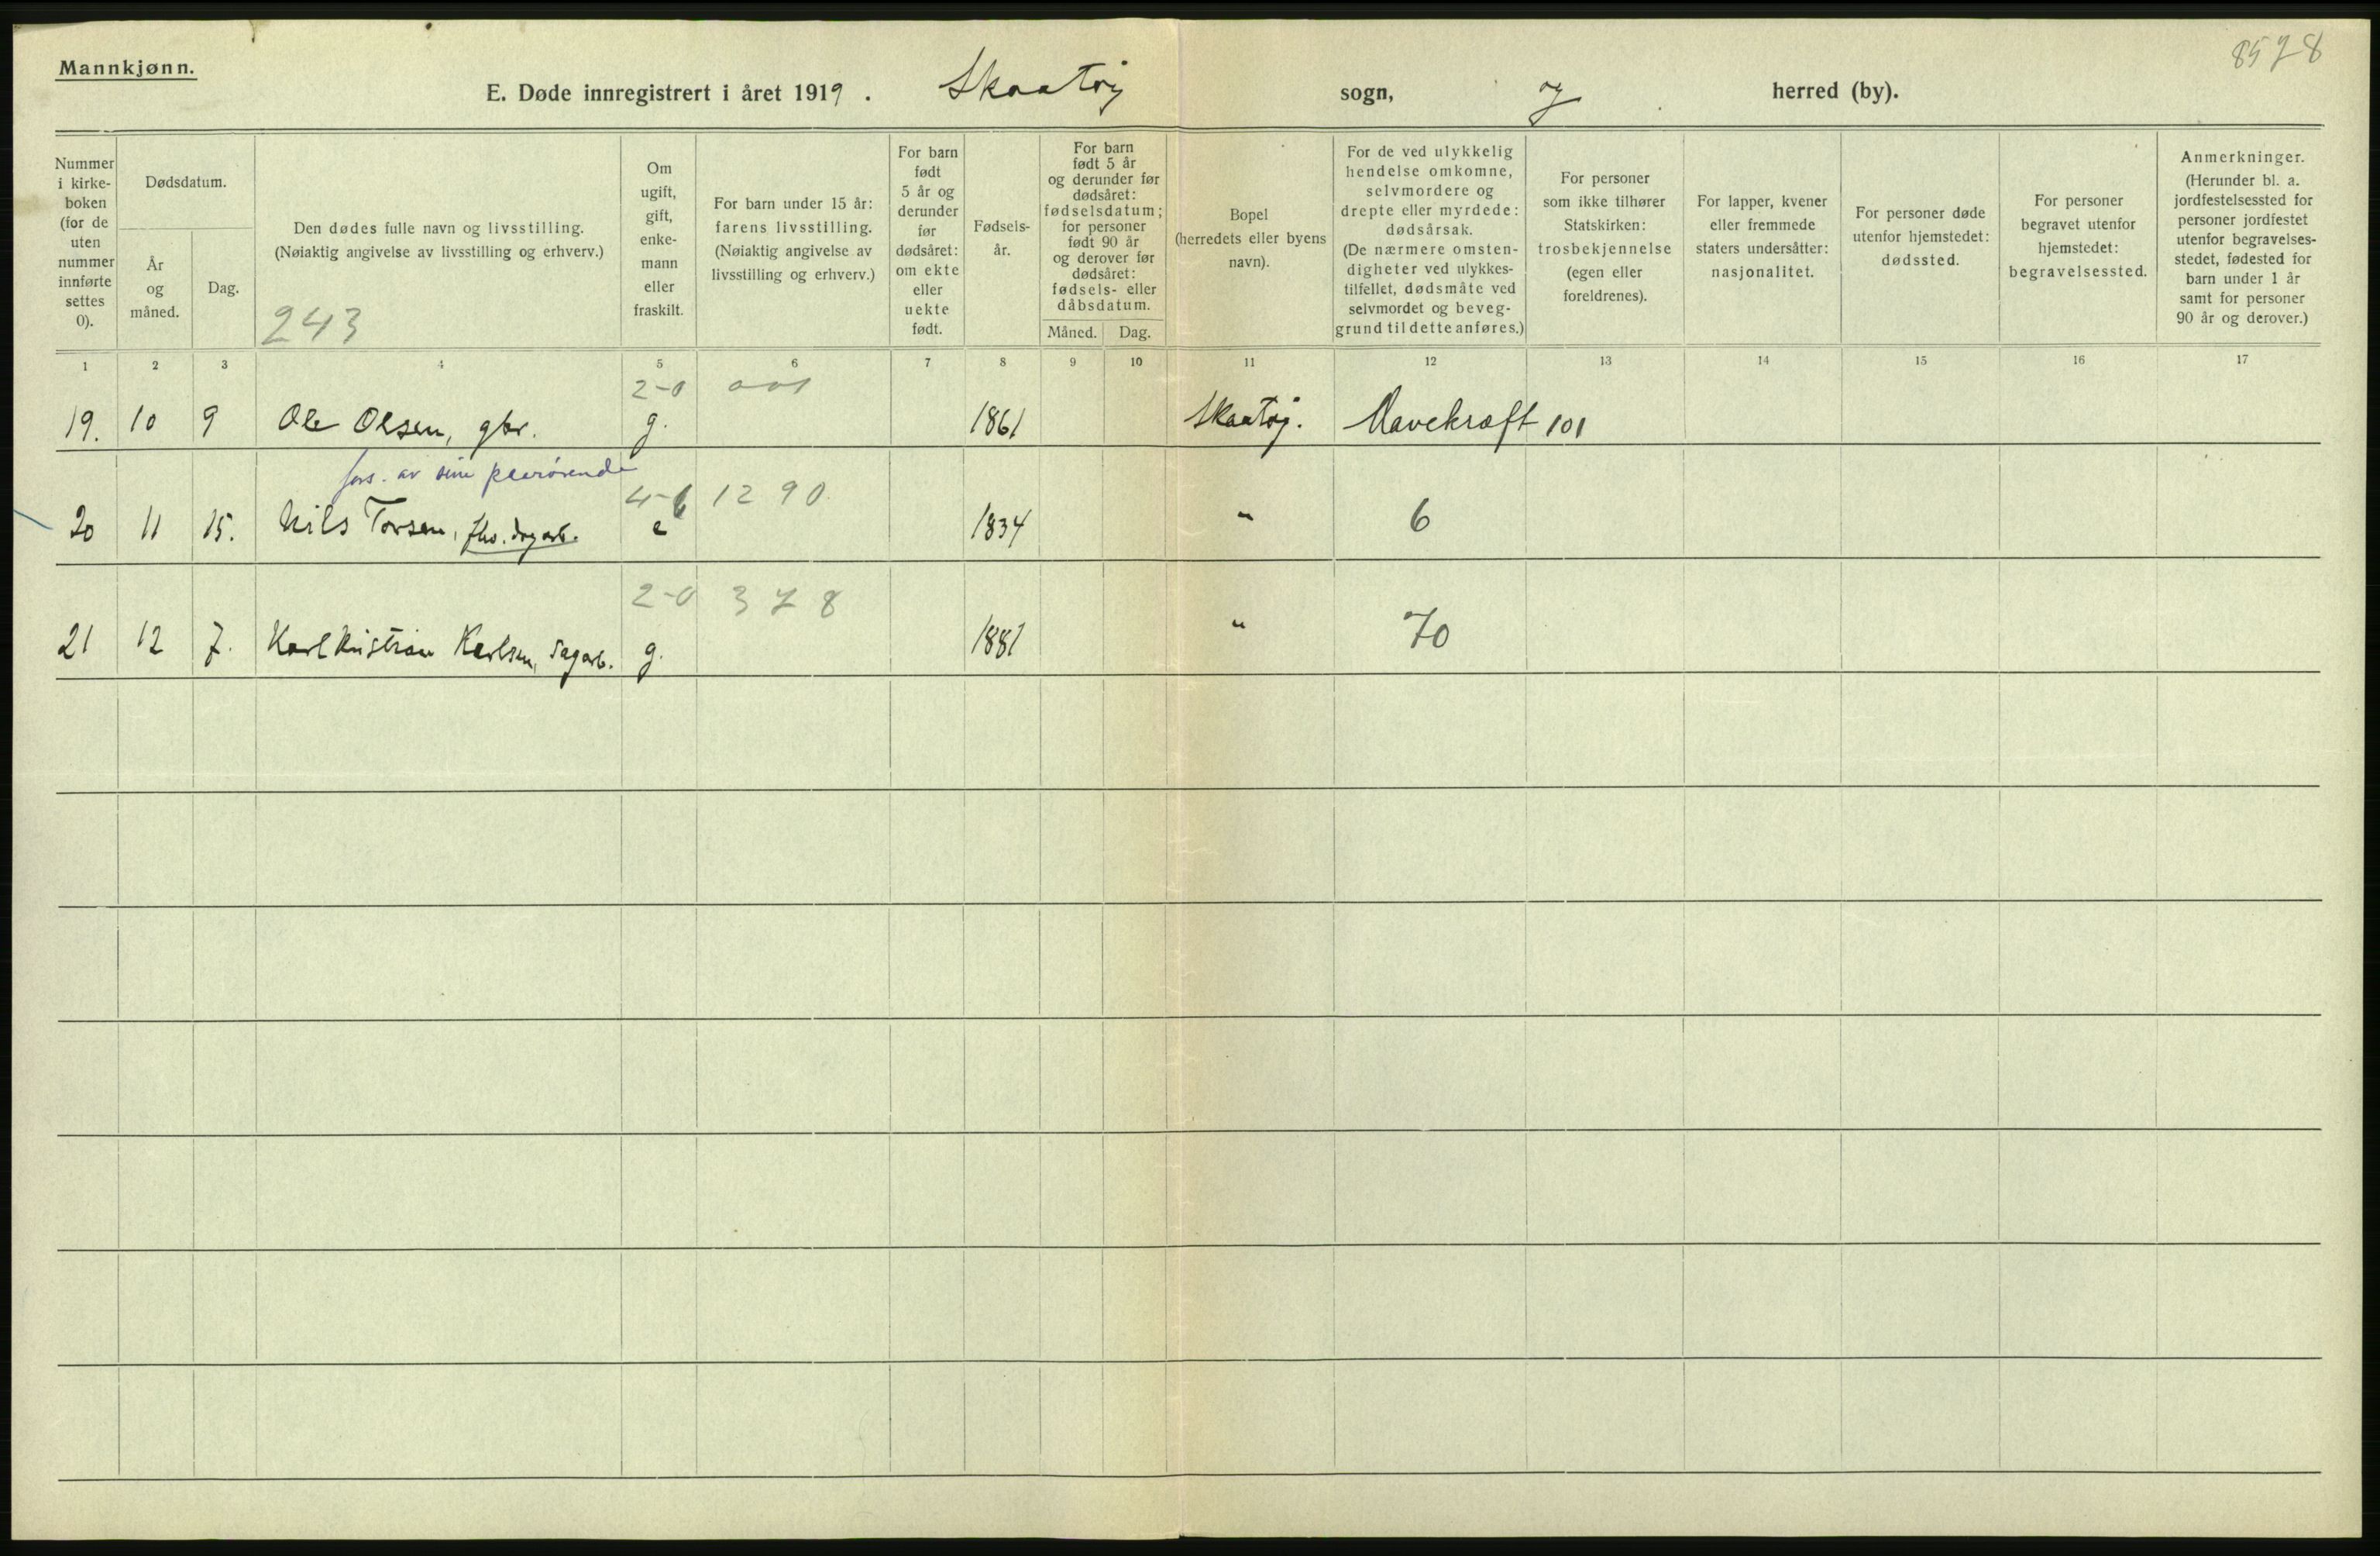 8578
Mannkjønn.
E. Døde innregistrert i året 1919. Skaatøy sogn, herred (by).
Nummer i kirke-boken (for de uten nummer innførte settes 0).
Dødsdatum.
År og måned.
Dag.
Den dødes fulle navn og livsstilling.
(Nøiaktig angivelse av livsstilling og erhverv.)
243
Om ugift, gift, enke-mann eller fraskilt.
For barn under 15 år: farens livsstilling. (Nøiaktig angivelse av livsstilling og erhverv.)
For barn født 5 år og derunder før dødsåret: om ekte eller uekte født.
Fødsels-år.
For barn født 5 år og derunder før dødsåret: fødselsdatum; for personer født 90 år og derover før dødsåret: fødsels- eller dåbsdatum.
Måned. Dag.
Bopel (herredets eller byens navn).
For de ved ulykkelig hendelse omkomne, selvmordere og drepte eller myrdede: dødsårsak. (De nærmere omsten-digheter ved ulykkes-tilfellet, dødsmåte ved selvmordet og beveg-grund til dette anføres.)
For personer som ikke tilhører Statskirken: trosbekjennelse (egen eller foreldrenes).
For lapper, kvener eller fremmede staters undersåtter: nasjonalitet.
For personer døde utenfor hjemstedet: dødssted.
For personer begravet utenfor hjemstedet: begravelsessted.
Anmerkninger. (Herunder bl. a. jordfestelsessted for personer jordfestet utenfor begravelses-stedet, fødested for barn under 1 år samt for personer 90 år og derover.)
1 2 3 4 5 6 7 8 9 10 11 12 13 14 15 16 17
2-0 001
19. 10 9 Ole Olsen, gbr. g. 1861 Skaatøy. Mavekræft 101
fors. av sine paarørende
1290
20 11 15. Nils Torsen, fhv. dagarb. e 1834 " 6
2-0 378
21 12 7. Karl Kristian Karlsen, sagarb. g. 1881 " 70